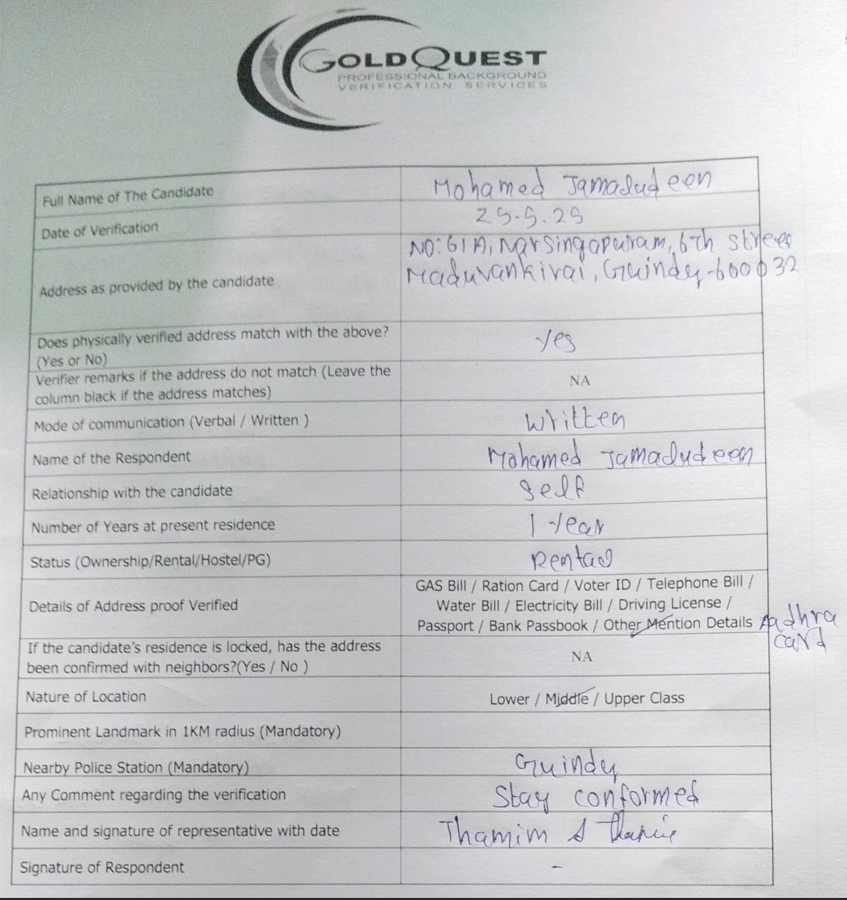 GOLDQUEST
PROFESSIONAL BACKGROUND
VERIFICATION SERVICES
Full Name of The Candidate
Mohamed Jamaludeen
Date of Verification
25.5.25
Address as provided by the candidate
NO: 61A, Narsingapuram, 6th street
Maduvankirai, Guindy-600032
Does physically verified address match with the above?
(Yes or No)
Yes
Verifier remarks if the address do not match (Leave the
column black if the address matches)
NA
Mode of communication (Verbal / Written )
Written
Name of the Respondent
Mohamed Jamaludeen
Relationship with the candidate
Self
Number of Years at present residence
1 Year
Status (Ownership/Rental/Hostel/PG)
Rental
Details of Address proof Verified
GAS Bill / Ration Card / Voter ID / Telephone Bill /
Water Bill / Electricity Bill / Driving License /
Passport / Bank Passbook / Other Mention Details Aadhra
card
If the candidate's residence is locked, has the address
been confirmed with neighbors?(Yes / No )
NA
Nature of Location
Lower / Middle / Upper Class
Prominent Landmark in 1KM radius (Mandatory)
Nearby Police Station (Mandatory)
Guindy
Any Comment regarding the verification
Stay conformed
Name and signature of representative with date
Thamim A
Signature of Respondent
-